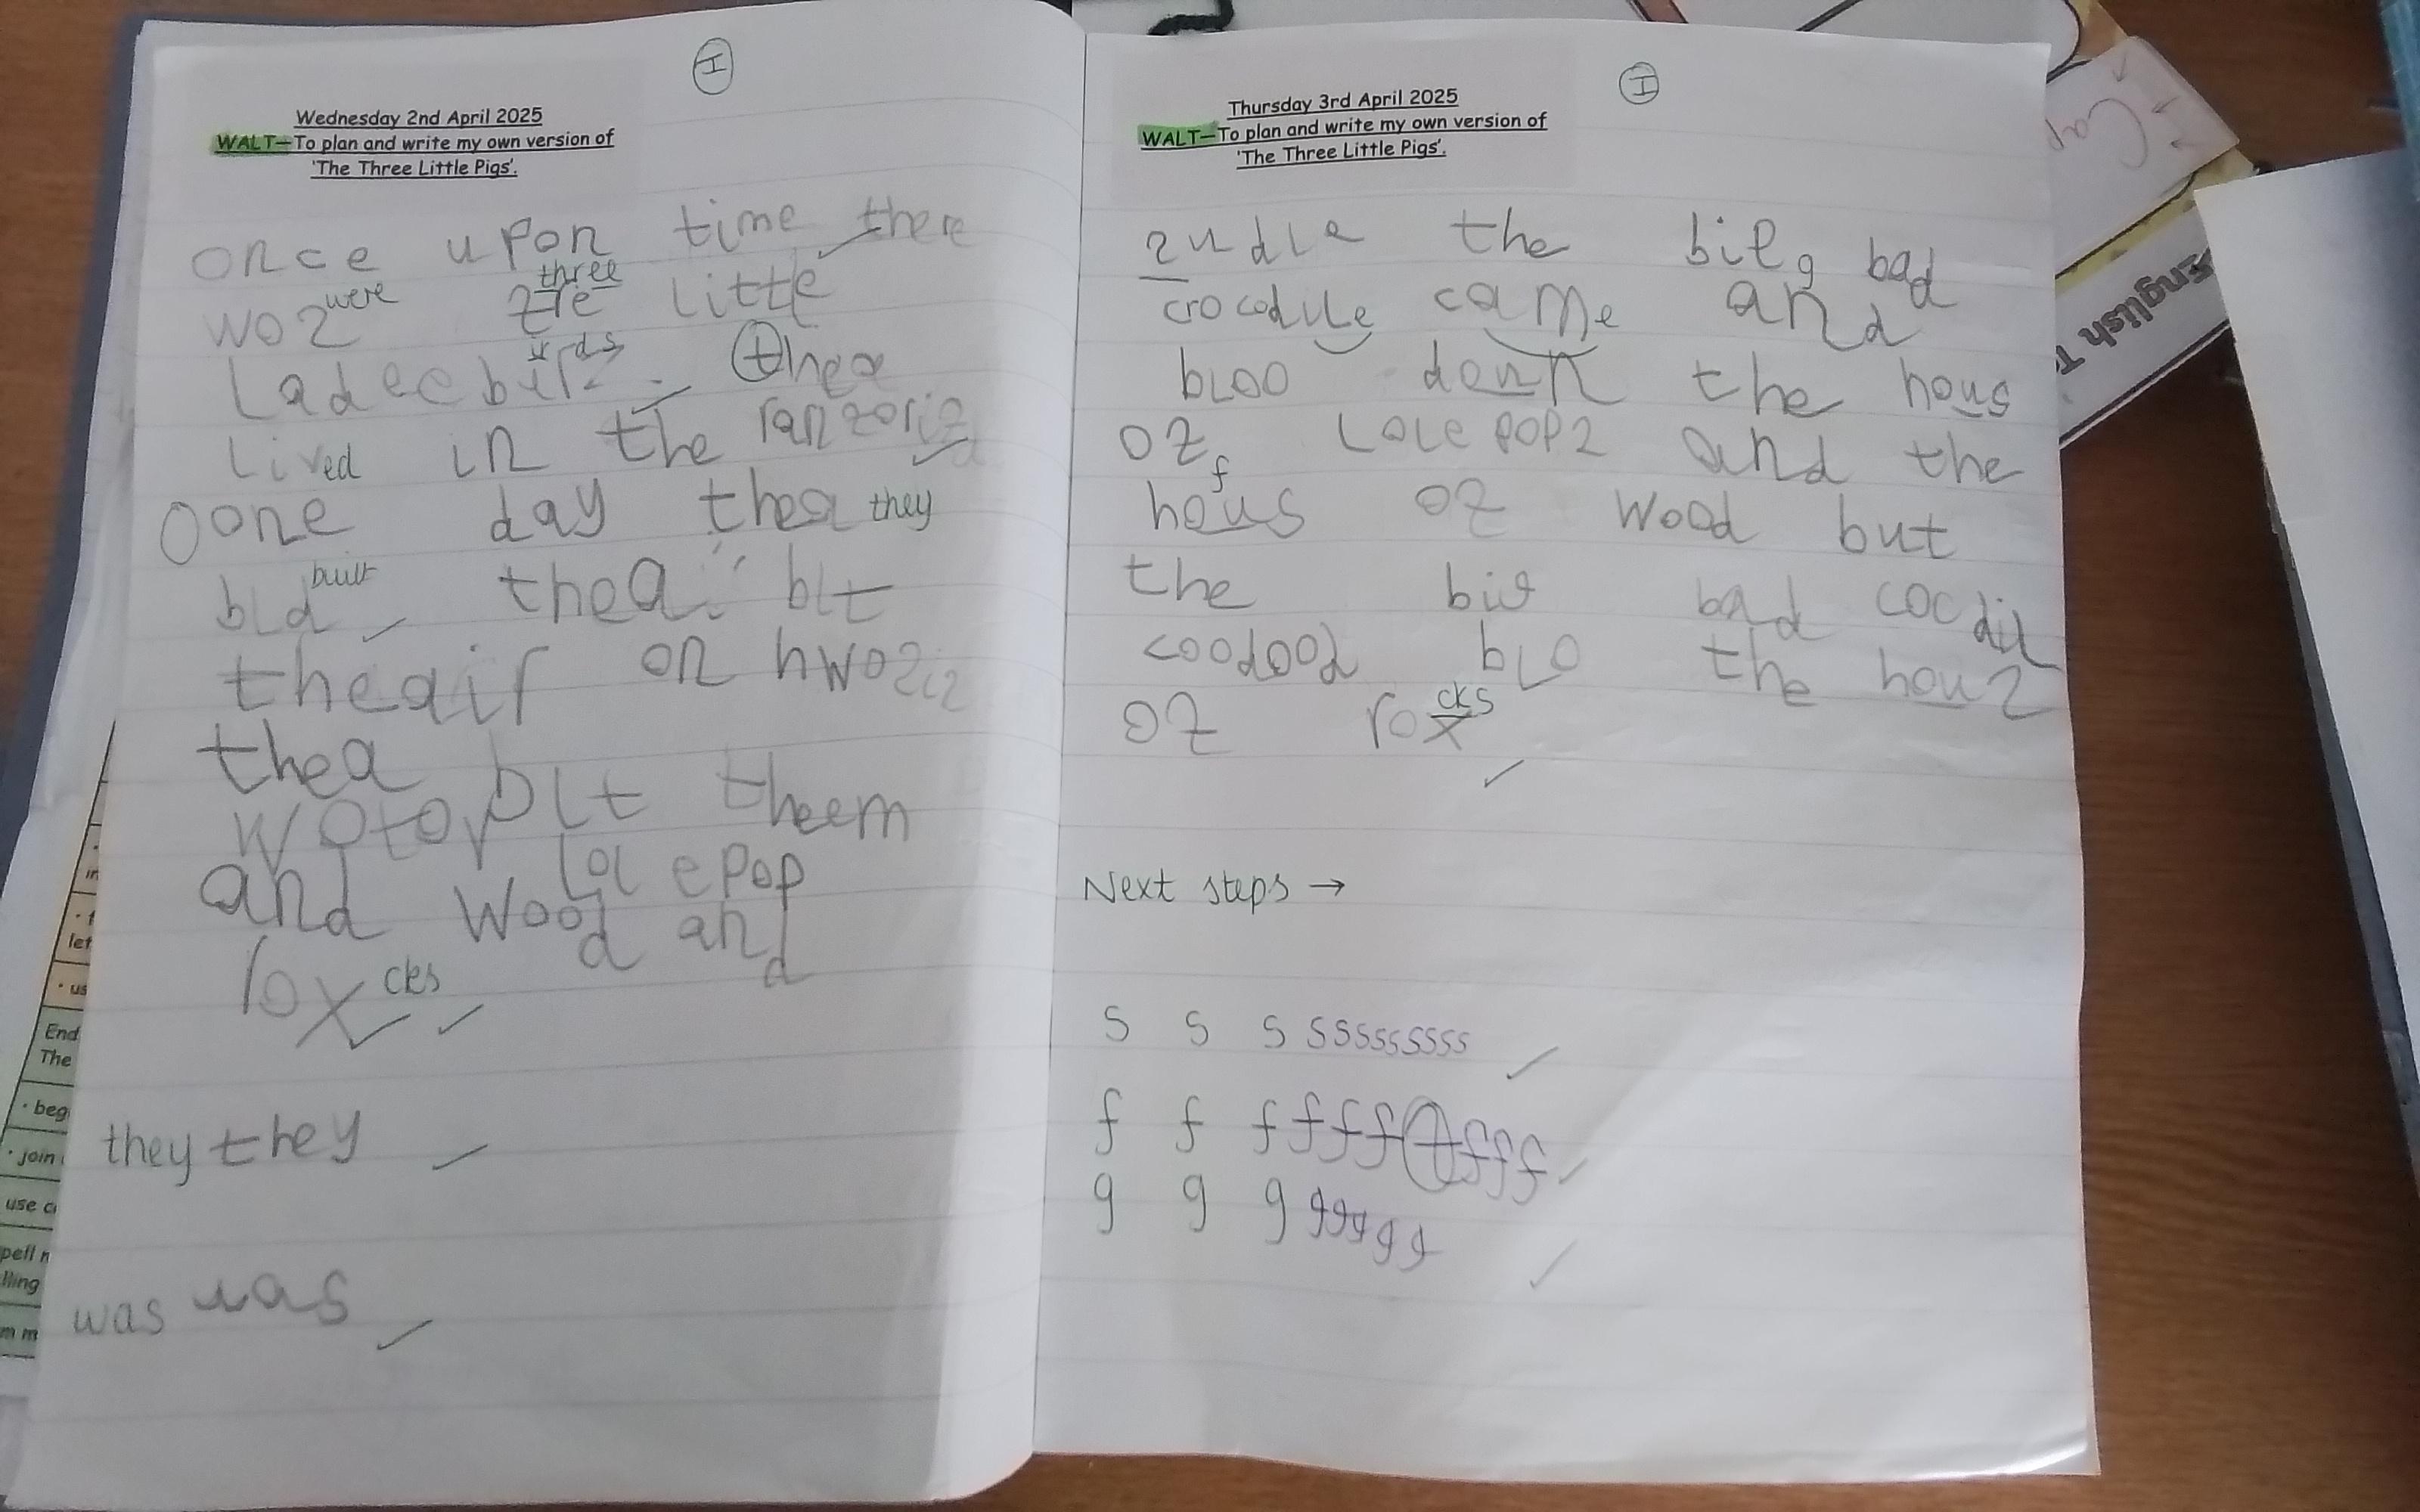 I
Wednesday 2nd April 2025
WALT-To plan and write my own version of
'The Three Little Pigs'.
once upon time there
three
wo2 were little
Ladeebir2 rds thea
lived in the ranzoriz
one day thea they
bld built thea blt
theair on hwo2i2
thea blt theem
wotov lolepop
and wood and
rox cks
they they
was was
I
Thursday 3rd April 2025
WALT-To plan and write my own version of
'The Three Little Pigs'.
2udle the big g bad
crocodile came and
bloo down the hous
oz f Lolepop2 and the
hous oz wood but
the big bad cocdil
coodood blo the hou2
oz rox cks
Next steps →
s s s sssssssss
f f f f f f f f f f
g g g g g g g g g
English
Cap
in
let
us
End
The
beg
join
use c
pell n
lling
m m